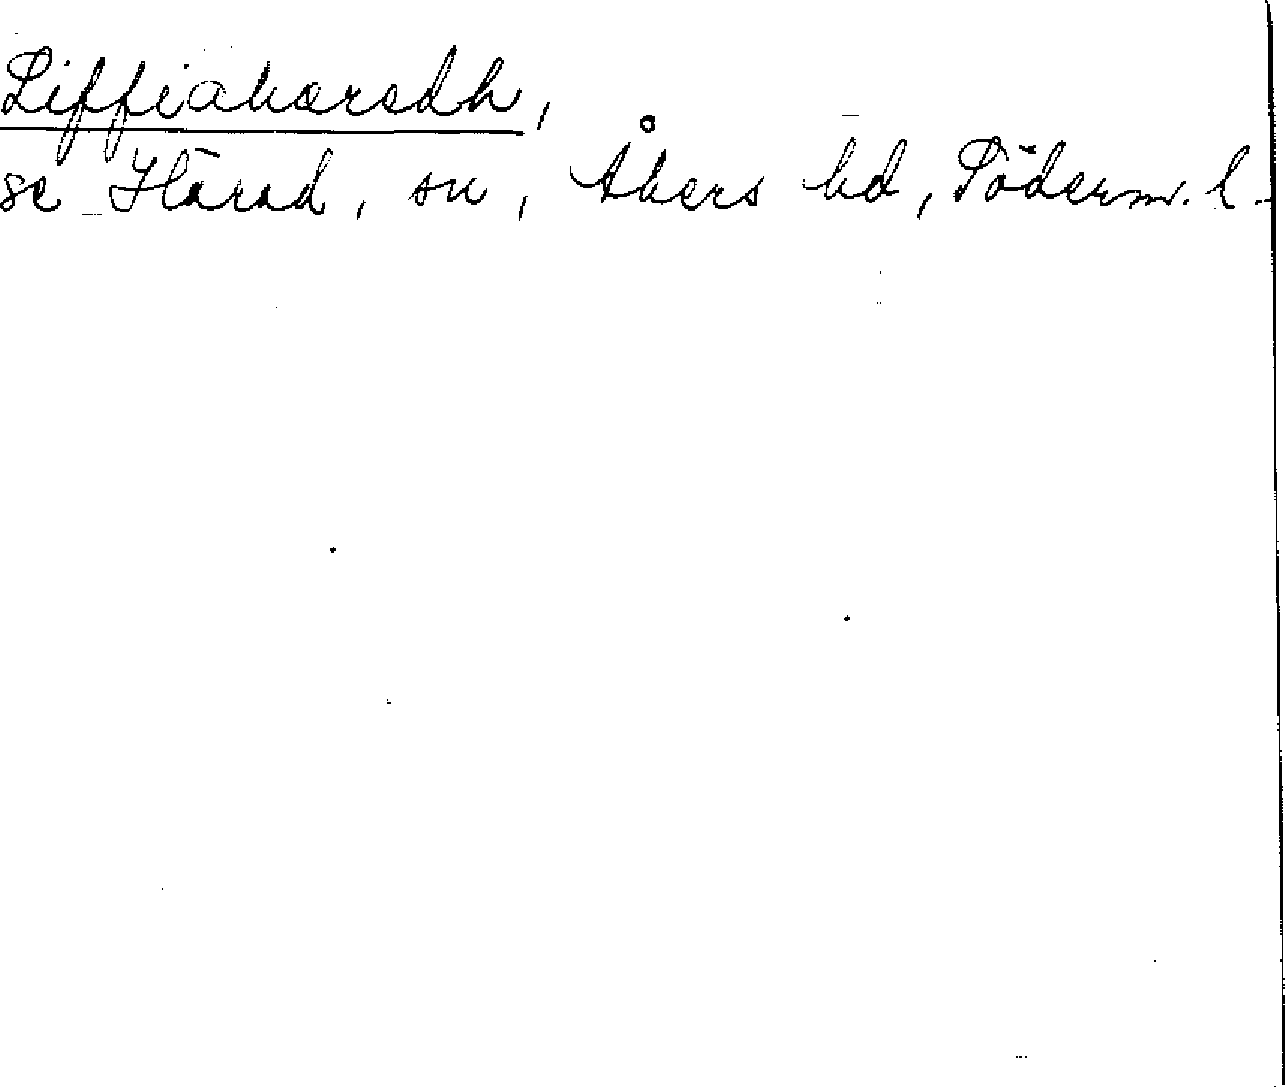 Liffiahæradh,
se Härad, sn, Åkers hd, Söderm. l.